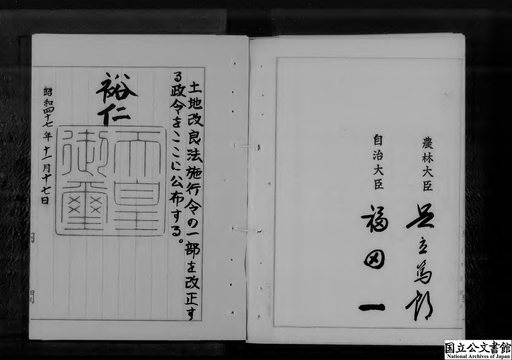 土地改良法施行令の一部を改正す
る政令をここに公布する。
裕仁
天皇
御璽
昭和四十七年十一月十七日
農林大臣
足立篤郎
自治大臣
福田一
国立公文書館
National Archives of Japan